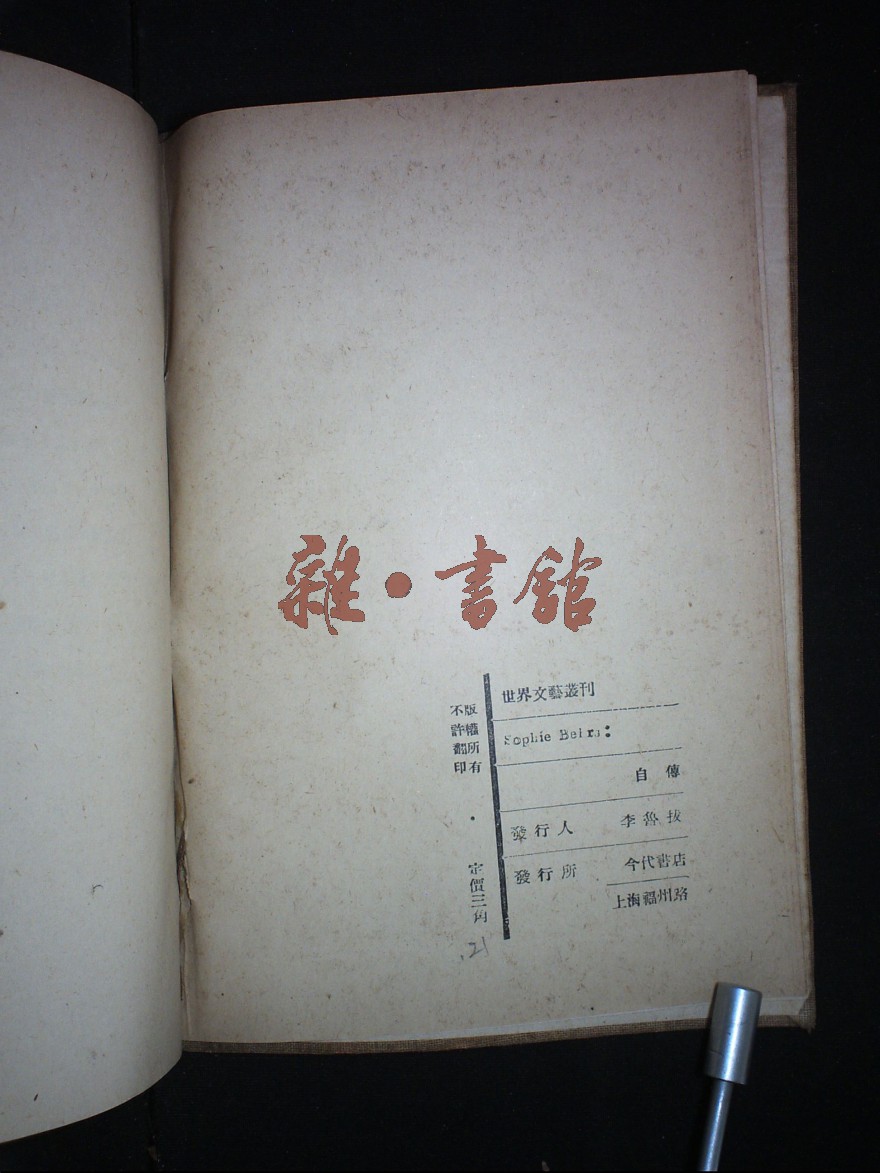 雜·書館
世界文藝叢刊
Sophie
自傳
發行人 李魯拔
發行所 今代書店
上海福州路
版權所有
不許翻印
·
定價三角
.21